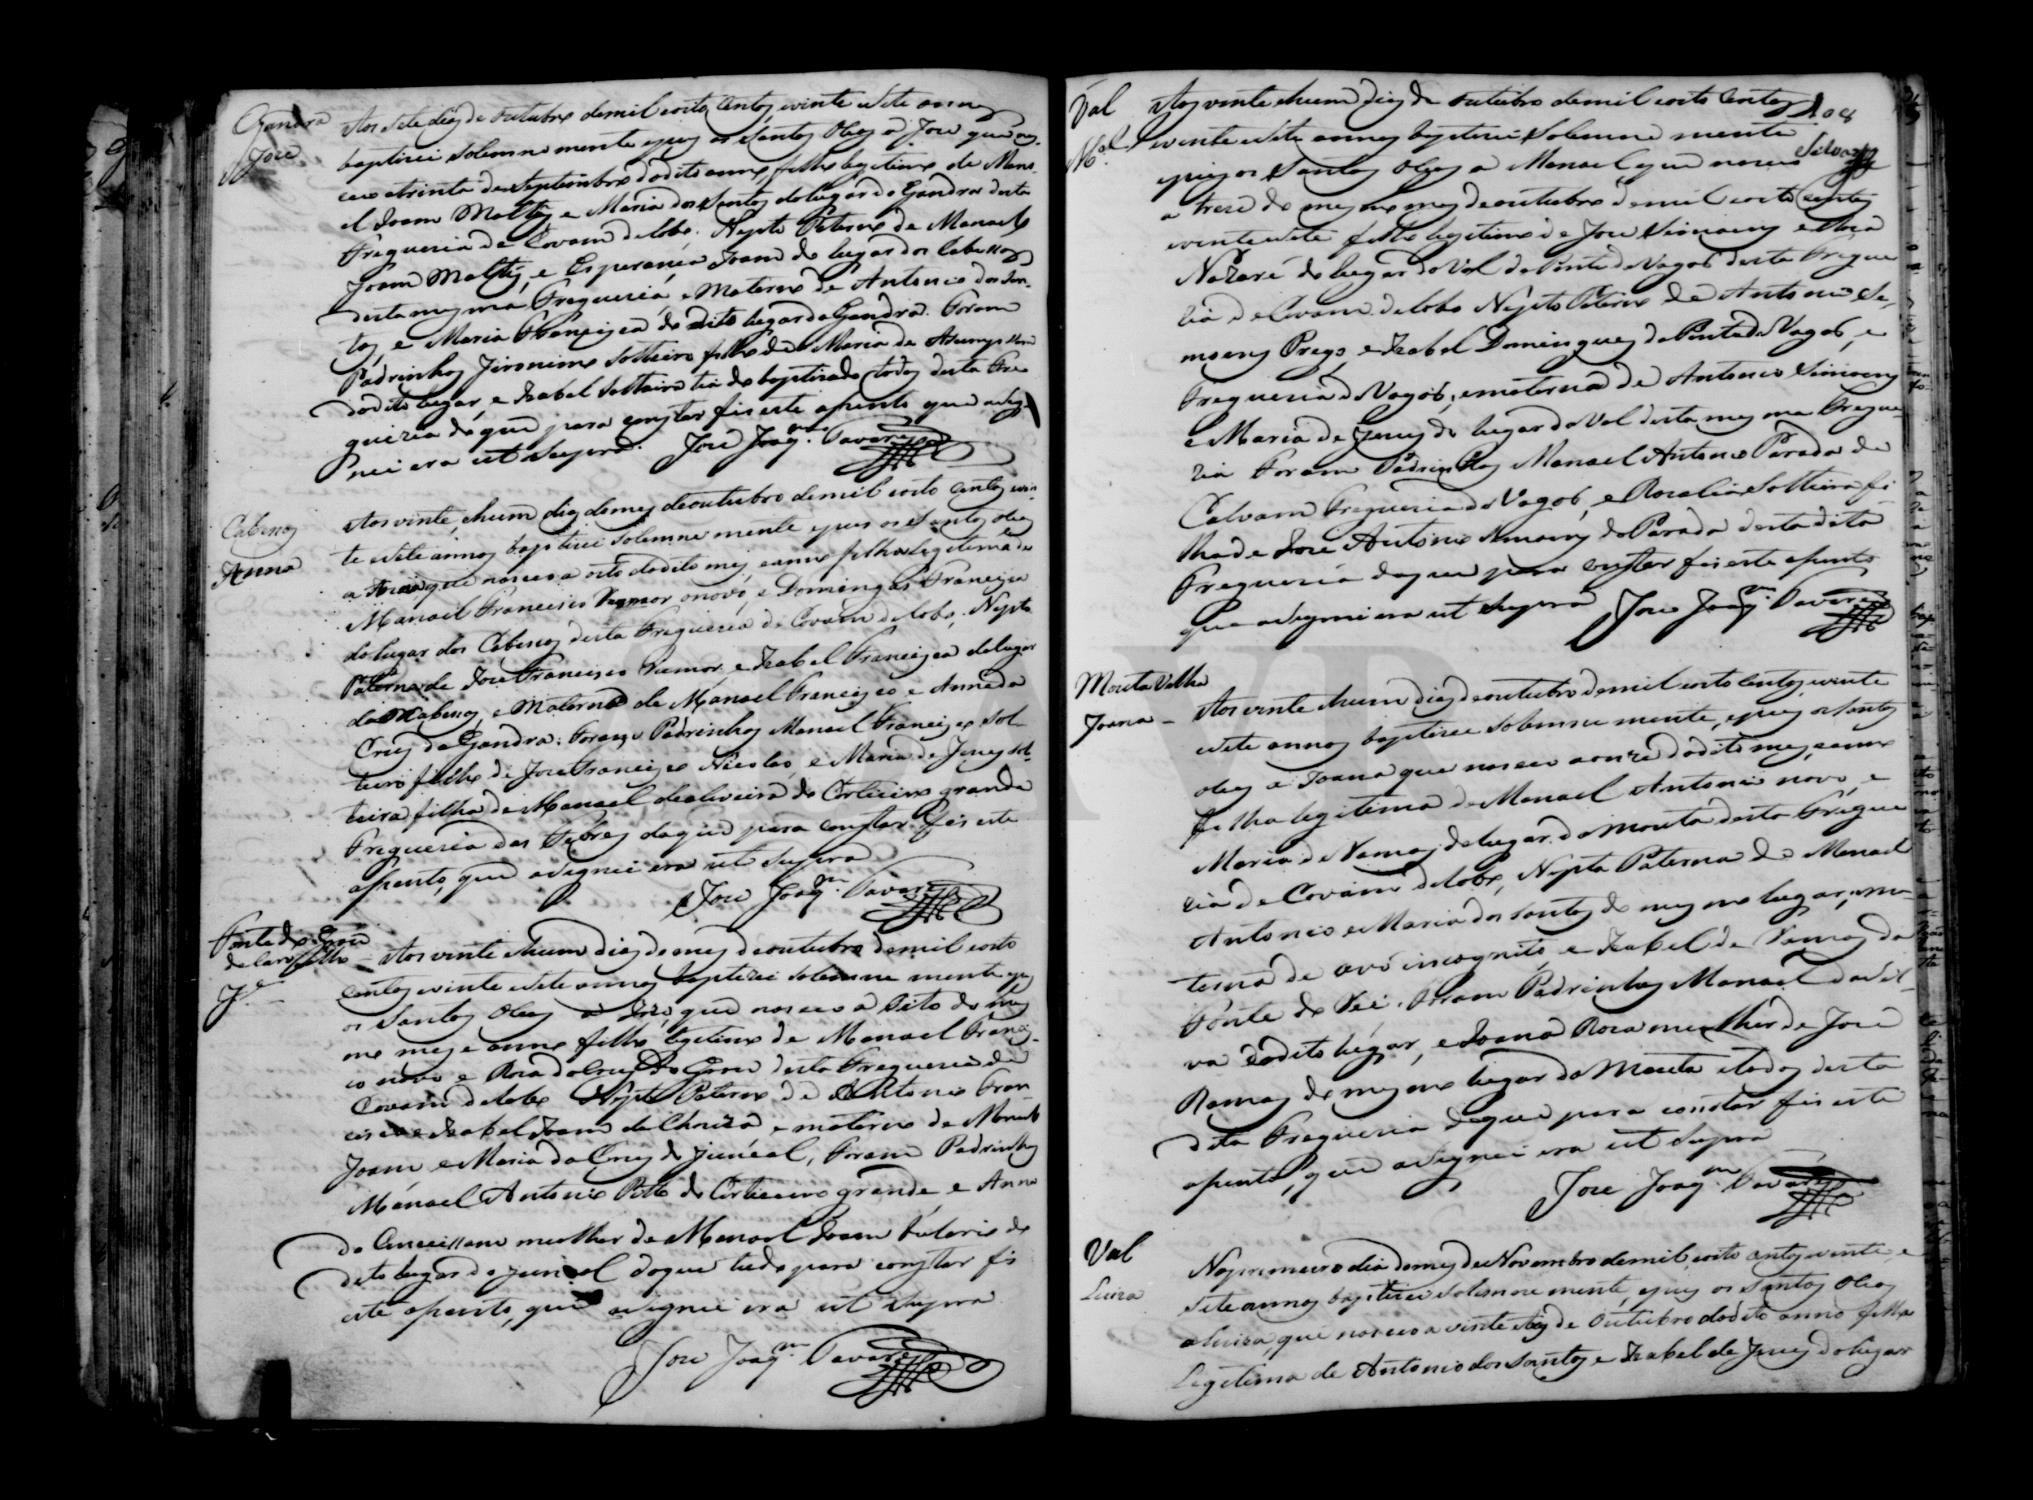 Gandra
José
Aos sete dias de outubro de mil e oito centos e vinte e sete annos
baptizei solemne mente e pus os Santos Oleos a Jose que nas-
ceo a trinta de Septembro do dito anno, filho legitimo de Mano-
el Joam Maltez e Maria dos Santos do lugar da Gandra desta
Freguezia de Covam do lobo. Nepto Paterno de Manoel
Joam Maltez, e Esperança Joam do lugar dos
desta mesma Freguezia, e Materno de Antonio dos San-
tos, e Maria Francisca do dito lugar da Gandra. Foram
Padrinhos Jironimo solteiro filho de Maria de Asumpssam
do dito lugar, e Izabel solteira tia do baptizado todos desta Fre
guezia do que para constar fis este asento que asig-
nei era ut supra. Jose Joaqm. Tavares
Cabesos
Anna
Aos vinte e hum dias do mes de outubro de mil e oito centos e vin-
te e sete annos baptizei solemne mente e pus os Santos oleos
a Anna que nasceo a oito do dito mes e anno filha legitima de
Manoel Francisco Ramor o novo, e Domingas Francisca
do lugar dos Cabesos desta Freguezia de Covam do lobo, Nepta
Paterna de Jose Francisco Ramor, e Izabel Francisca do lugar
dos Cabesos, e Materna de Manoel Francisco e Anna da
Cruz da Gandra: Foram Padrinhos Manoel Francisco sol-
teiro filho de Jose Francisco Nicolao, e Maria de Jesus sol-
teira filha de Manoel de oliveira do Corticeiro grande
Freguezia das Febres do que para constar fis este
asento, que asignei era ut supra
Jose Joaqm. Tavares
Fonte do Grou
Je.
Aos vinte e hum dias do mes de outubro de mil e oito
centos e vinte e sete annos baptizei solemne mente e pus
os Santos Oleos a Joze, que nasceo a oito do mes
mo mes e anno filho legitimo de Manoel Francis-
co novo e Roza da Cruz do Grou desta Freguezia de
Covam do lobo Nepto Paterno de Antonio Fran-
cisco e Izabel Joam da Choiza e materno de Manoel
Joam e Maria da Cruz do Juncal, Foram Padrinhos
Manoel Antonio Petto do Corticeiro grande, e Anna
da Conceissam mulher de Manoel Joam do
dito lugar do Juncal do que tudo para constar fis
este asento, que asignei era ut supra
Jose Joaqm. Tavares
Val
Mel
108
Silva
Aos vinte e hum dias de outubro de mil e oito centos
e vinte e sete annos baptizei solemne mente
e pus os Santos Oleos a Manoel que nasceo
a treze do mesmo mes de outubro de mil e oito centos
e vinte e sete filho legitimo de Jose Simoens e Roza
Nazaré do lugar do Val da Ponte de Vagos desta Fregue
zia de Covam do lobo Nepto Paterno de Antonio Si-
moens Prego, e Izabel Domingues da Ponte de Vagos, e
Freguezia de Vagos, e materno de Antonio Simoens
e Maria de Jesus do lugar do Val desta mesma Fregue
zia Foram Padrinhos Manoel Antonio Parada de
Calvam Freguezia de Vagos, e Rozalia solteira fi
lha de Jose Antonio da Parada desta dita
Freguezia do que para constar fis este asento
que asignei era ut supra Jose Joaqm. Tavares
Mouta Velha
Joana
Aos vinte e hum dias de outubro de mil e oito centos e vinte
e sete annos baptizei solemne mente, e pus os Santos
oleos a Joana que nasceo a onze do dito mes e anno
filha legitima de Manoel Antonio novo, e
Maria de Ramos do lugar da Mouta desta Fregue
zia de Covam do lobo, Nepta Paterna de Manoel
Antonio e Maria dos Santos do mesmo lugar, e ma-
terna de avó incognito, e Izabel de Ramos da
Fonte do Foram Padrinhos Manoel da Sil-
va do dito lugar, e Joana Roza mulher de José
Ramos do mesmo lugar da Mouta e todos desta
dita Freguezia do que para constar fis este
asento, que asignei era ut supra
Jose Joaqm. Tavares
Val
Luiza
No primeiro dia do mes de Novembro de mil e oito centos e vinte, e
sete annos baptizei solemne mente, e pus os Santos Oleos
a Luiza, que nasceo a vinte e de Outubro do dito anno filha
Legitima de Antonio dos Santos e Izabel de Jesus do lugar